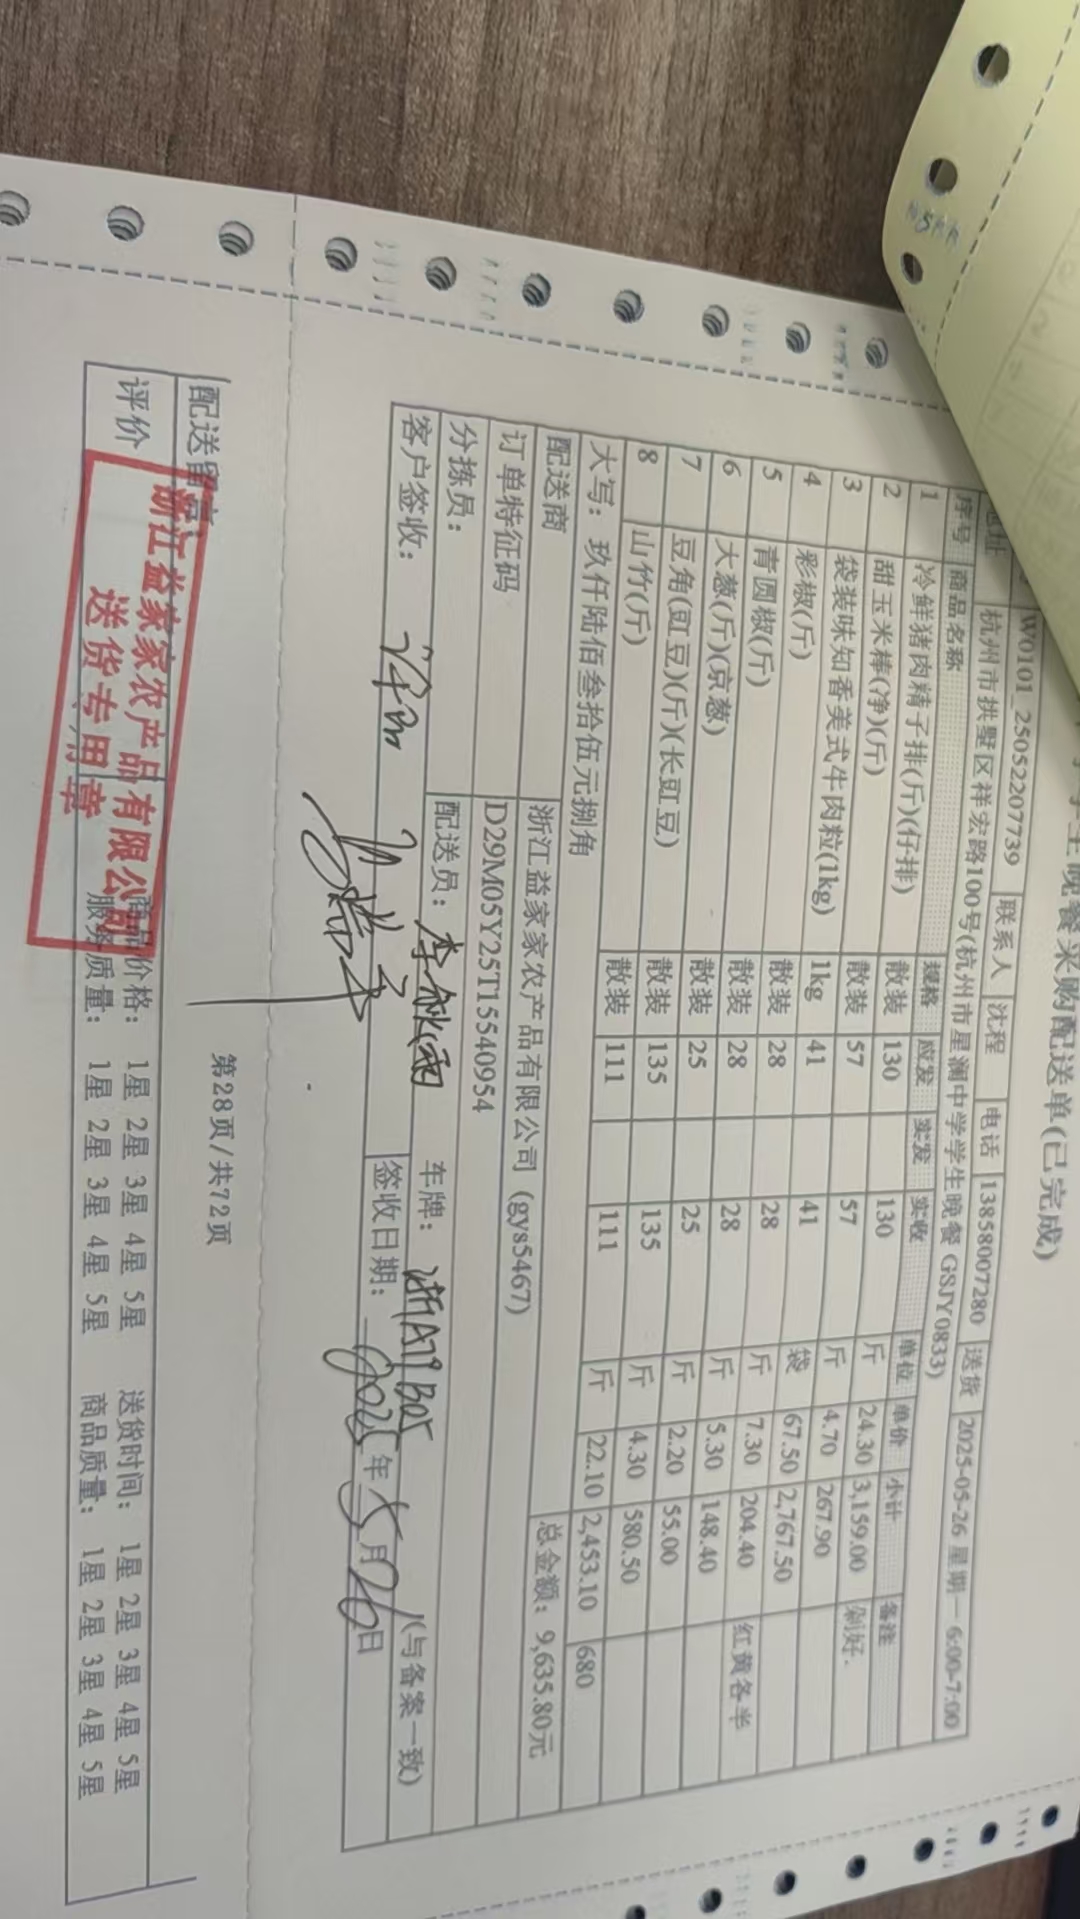 学生晚餐采购配送单(已完成)
W0101_250522207739 联系人 沈程 电话 13858007280 送货 2025-05-26 星期一 6:00-7:00
地址 杭州市拱墅区祥宏路100号(杭州市星澜中学学生晚餐 GSJY0833)
序号 商品名称 规格 应发 实发 实收 单位 单价 小计 备注
1 冷鲜猪肉精子排(斤)(仔排) 散装 130 130 斤 24.30 3,159.00 剁好.
2 甜玉米棒(净)(斤) 散装 57 57 斤 4.70 267.90
3 袋装味知香美式牛肉粒(1kg) 1kg 41 41 袋 67.50 2,767.50
4 彩椒(斤) 散装 28 28 斤 7.30 204.40 红黄各半
5 青圆椒(斤) 散装 28 28 斤 5.30 148.40
6 大葱(斤)(京葱) 散装 25 25 斤 2.20 55.00
7 豆角(豇豆)(斤)(长豇豆) 散装 135 135 斤 4.30 580.50
8 山竹(斤) 散装 111 111 斤 22.10 2,453.10 680
大写：玖仟陆佰叁拾伍元捌角 总金额：9,635.80元
配送商 浙江益家家农产品有限公司 (gys5467)
订单特征码 D29M05Y25T15540954
分拣员： 配送员： 车牌： (与备案一致)
客户签收： 签收日期： 2025年5月26日
第28页/共72页
配送留言
评价 商品价格： 1星 2星 3星 4星 5星 送货时间： 1星 2星 3星 4星 5星
服务质量： 1星 2星 3星 4星 5星 商品质量： 1星 2星 3星 4星 5星
浙江益家家农产品有限公司
送货专用章